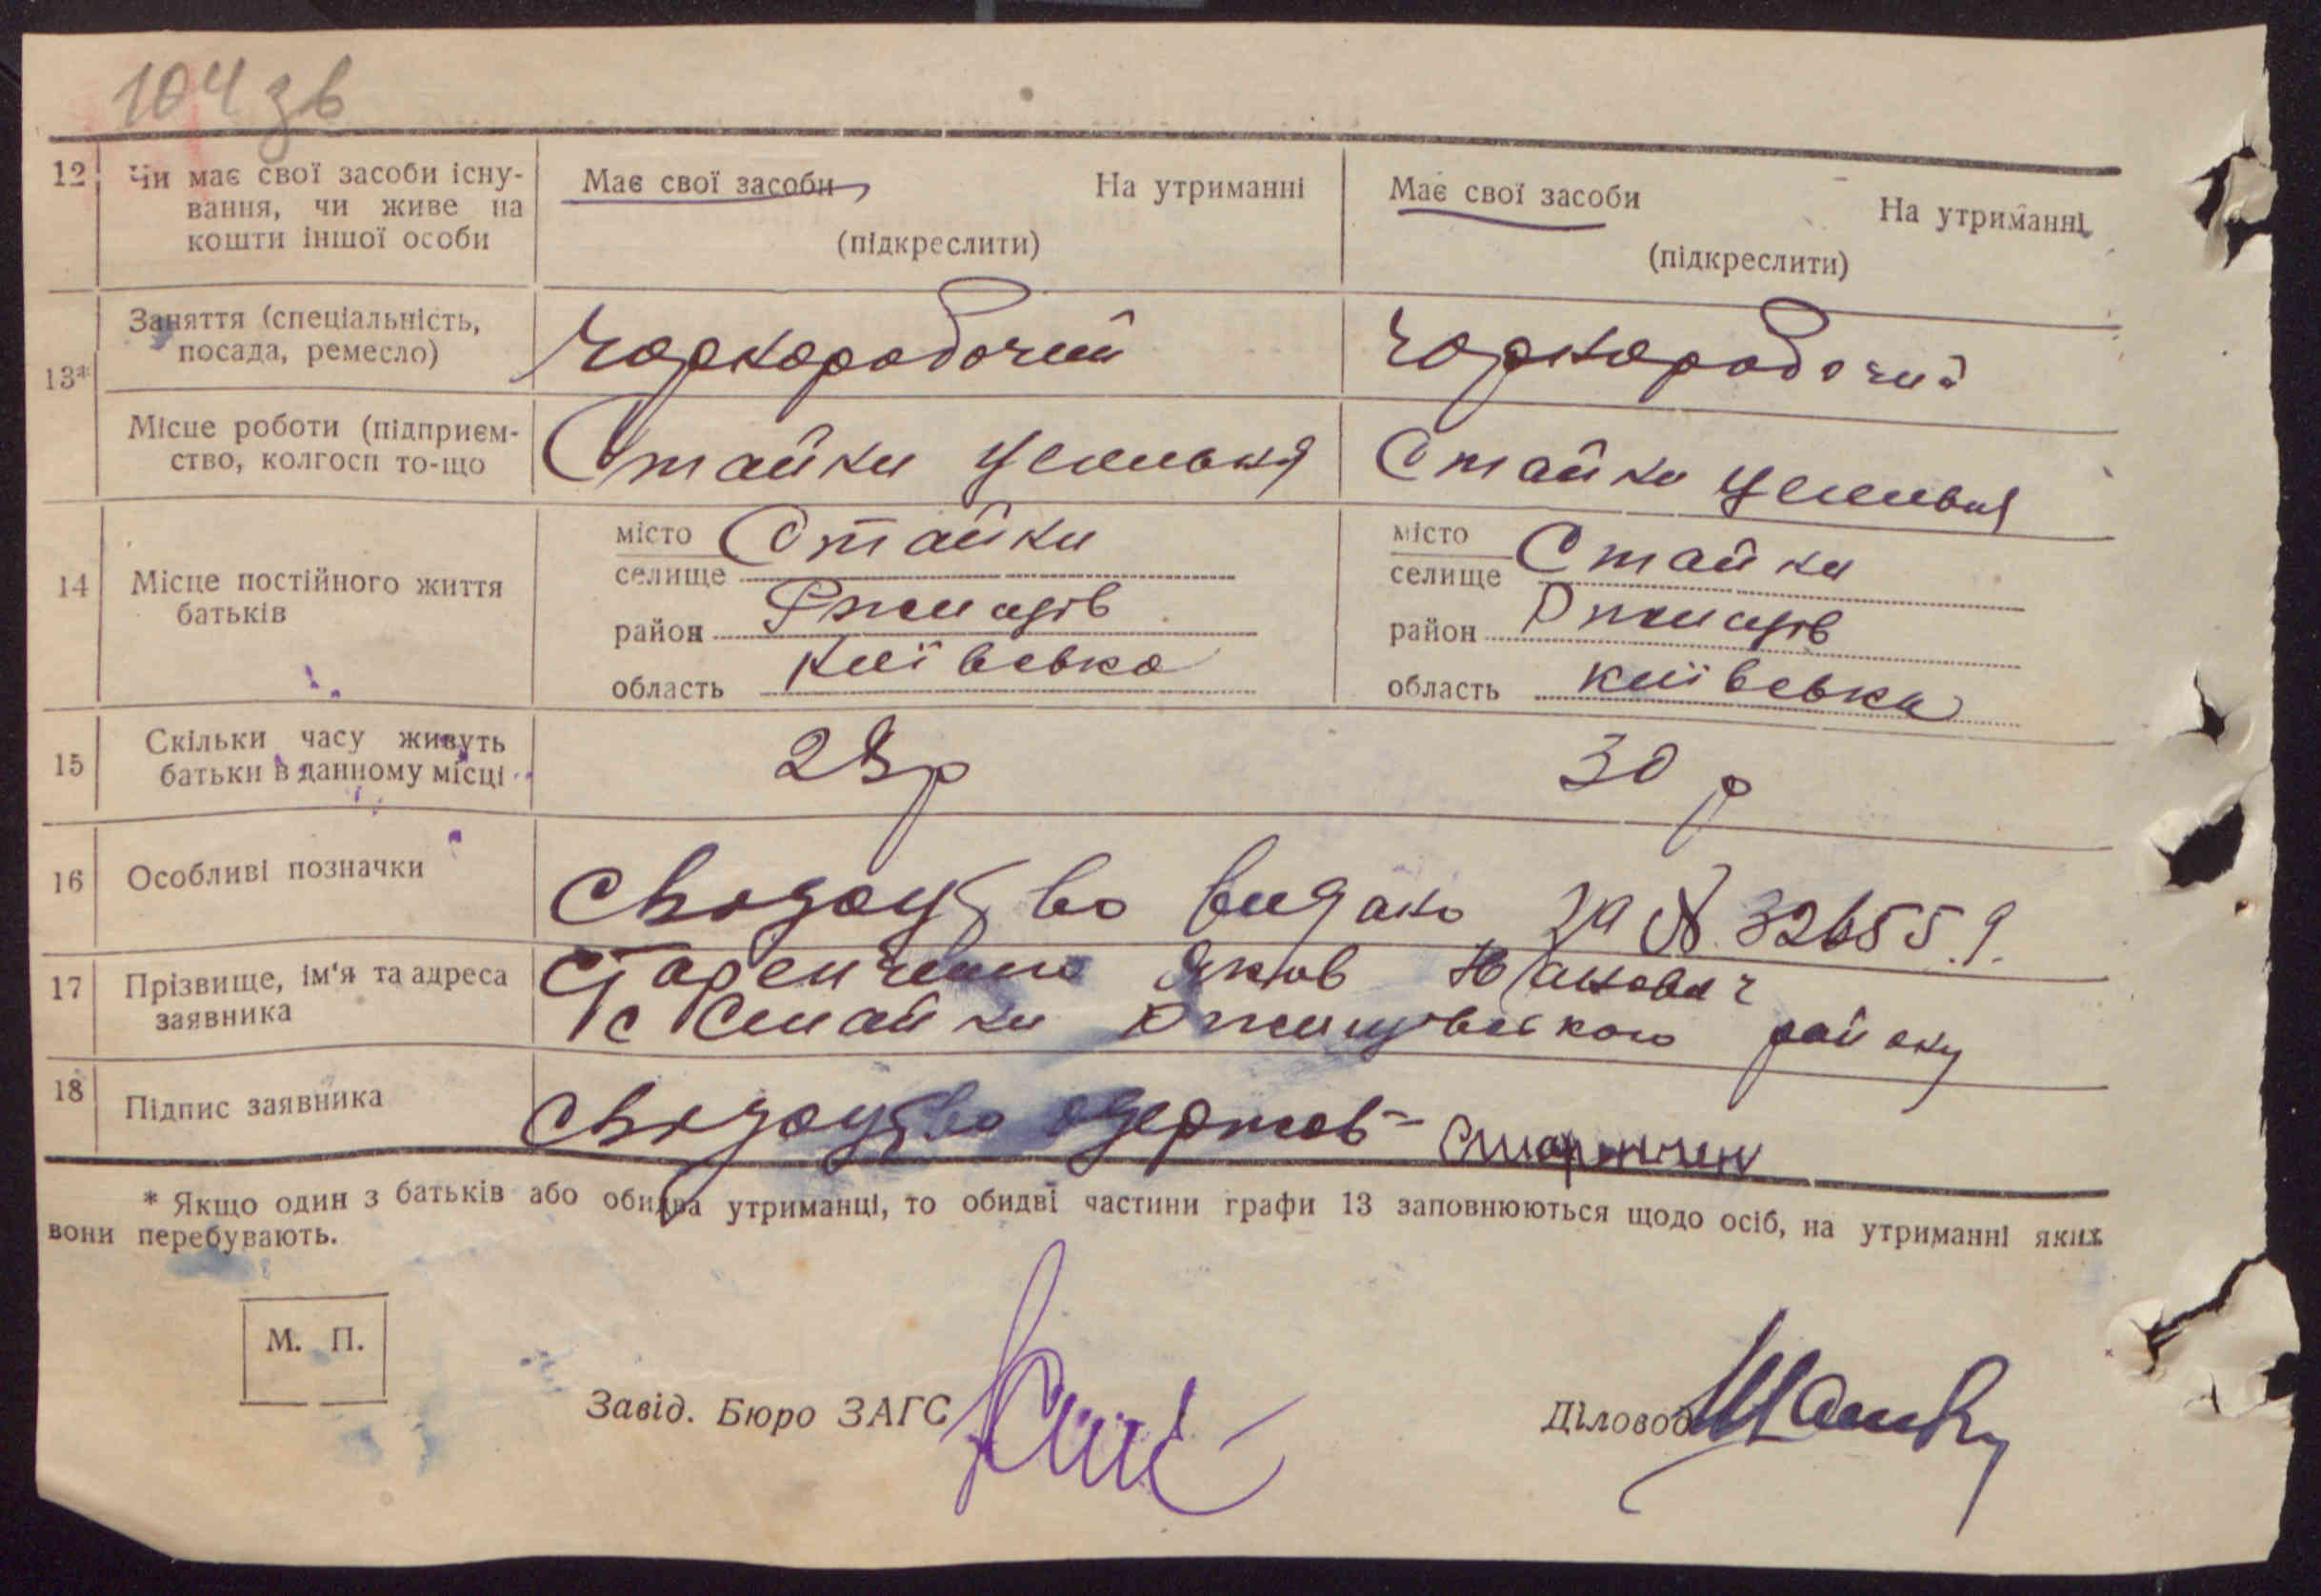 104 зв
12 Чи має свої засоби існу- Має свої засоби На утриманні Має свої засоби На утриманні
вання, чи живе на
кошти іншої особи (підкреслити) (підкреслити)
13* Заняття (спеціальність,
посада, ремесло) Чорноробочий Чорноробочий
Місце роботи (підприєм-
ство, колгосп то-що Стайки Стайки
14 Місце постійного життя
батьків
місто Стайки місто Стайки
селище селище
район Ржищів район Ржищів
область Київська область Київська
15 Скільки часу живуть
батьки в данному місці 28 р 30 р
16 Особливі позначки видано за №
17 Прізвище, ім'я та адреса Яков
заявника с Стайки Ржищівського району
18 Підпис заявника одержав
* Якщо один з батьків або обидва утриманці, то обидві частини графи 13 заповнюються щодо осіб, на утриманні яких
вони перебувають.
М. П.
Завід. Бюро ЗАГС Діловод